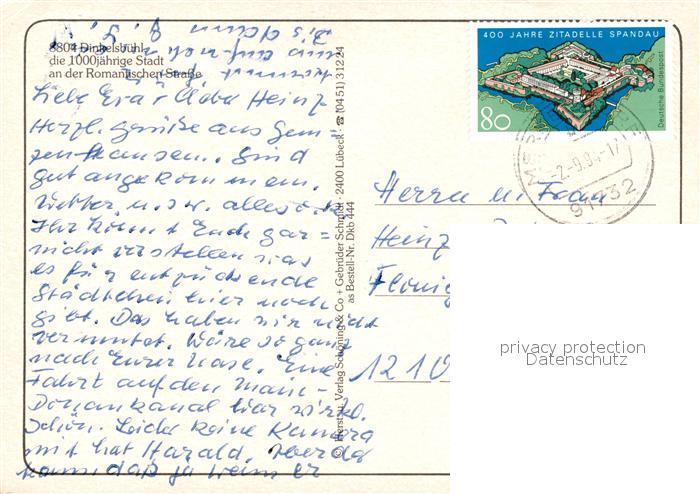 8804 Dinkelsbühl
die 1000jährige Stadt
an der Romantischen Straße
Liebe Eva + lieber Heinz
Herzl. Grüße aus Gun-
zenhausen. Sind
gut angekommen.
Wetter u.s.w. alles o.k.
Ihr könnt Euch gar=
nicht vorstellen was
es für entzückende
Städtchen hier noch
gibt. Das haben wir nicht
vermutet. Wäre so ganz
nach Eurer Nase. Eine
Fahrt auf den Main-
Donaukanal war wirkl.
schön. Leider keine Kamera
mit hat Harald,
kann, daß ja wenn Er
© Herst. u. Verlag Schöning & Co + Gebrüder Schmidt · 2400 Lübeck · ☎ (0451) 31224
as Bestell-Nr. Dkb 444
400 JAHRE ZITADELLE SPANDAU
Deutsche Bundespost
80
91732
Herrn u. Frau
Heinz
1210
privacy protection
Datenschutz